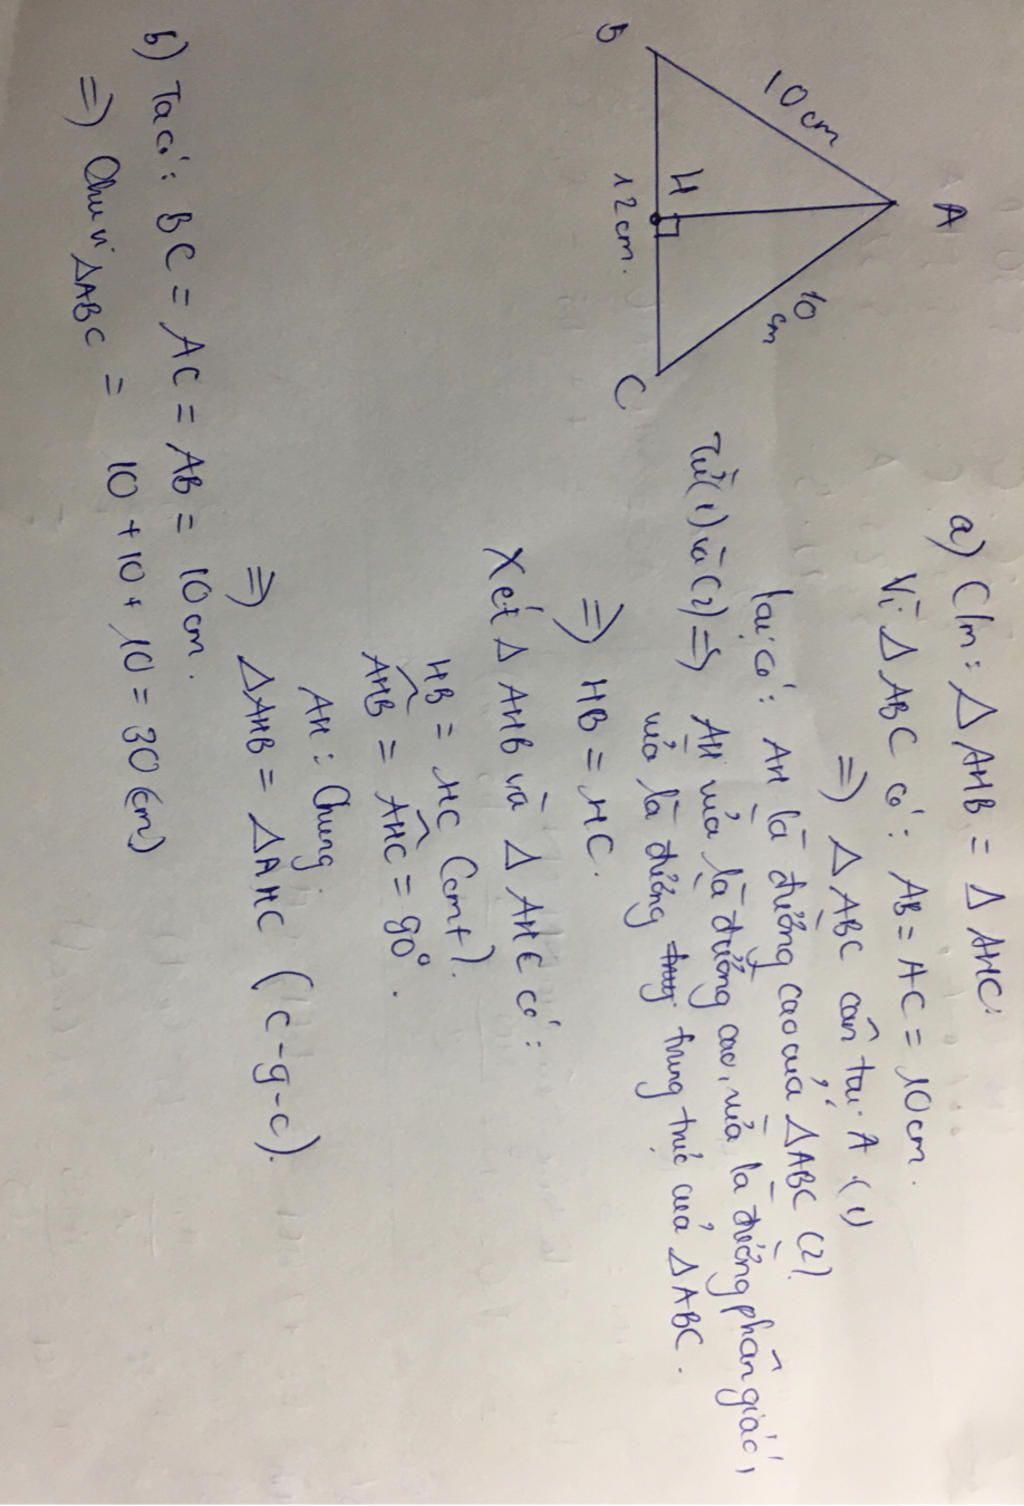 A
10 cm
10
cm
H
B
12 cm.
C
a) C/m: Δ AHB = Δ AHC.
Vì Δ ABC có: AB = AC = 10 cm.
=> Δ ABC cân tại A (1)
lại có: AH là đường cao của Δ ABC (2).
Từ (1) và (2) => AH vừa là đường cao, vừa là đường phân giác,
vừa là đường trung trực của Δ ABC.
=> HB = HC.
Xét Δ AHB và Δ AHC có:
HB = HC (cmt).
AHB = AHC = 90°.
AH: Chung.
=> ΔAHB = ΔAHC (c-g-c).
b) Ta có: BC = AC = AB = 10 cm.
=> Chu vi ΔABC = 10 + 10 + 10 = 30 (cm)